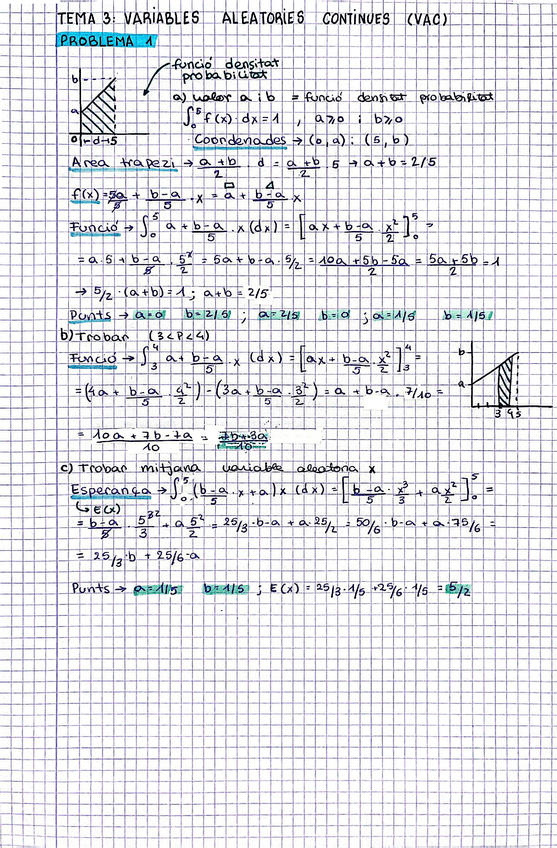 TEMA 3: VARIABLES ALEATORIES CONTINUES (VAC)
PROBLEMA 1
funció densitat
probabilitat
b
a
0 d 5
a) valor a i b = funció densitat probabilitat
∫₀⁵ f(x) · dx = 1 , a ≥ 0 i b ≥ 0
Coordenades → (0, a) : (5, b)
Area trapezi → a+b/2 · d = a+b/2 · 5 → a+b = 2/5
f(x) = 5a/5 + b-a/5 · x = a + b-a/5 x
Funció → ∫₀⁵ a + b-a/5 · x (dx) = [ax + b-a/5 · x²/2]₀⁵ =
= a·5 + b-a/5 · 5²/2 = 5a + b-a · 5/2 = 10a + 5b - 5a/2 = 5a + 5b/2 = 1
→ 5/2 · (a+b) = 1 ; a+b = 2/5
Punts → a=0 b=2/5 ; a=2/5 b=0 ; a=1/5 b=1/5
b) Trobar (3<P<4)
Funció → ∫₃⁴ a + b-a/5 · x (dx) = [ax + b-a/5 · x²/2]₃⁴ =
b
a
3 4 5
= (4a + b-a/5 · 4²/2) - (3a + b-a/5 · 3²/2) = a + b-a · 7/10 =
= 10a + 7b - 7a/10 = 7b+3a/10
c) Trobar mitjana variable aleatoria x
Esperança → ∫₀⁵ (b-a/5 · x + a) x (dx) = [b-a/5 · x³/3 + a x²/2]₀⁵ =
↳ E(x)
= b-a/5 · 5³/3 + a 5²/2 = 25/3 · b-a + a · 25/2 = 50/6 · b-a + a · 75/6 =
= 25/3 · b + 25/6 · a
Punts → a=1/5 b=1/5 ; E(x) = 25/3 · 1/5 + 25/6 · 1/5 = 5/2